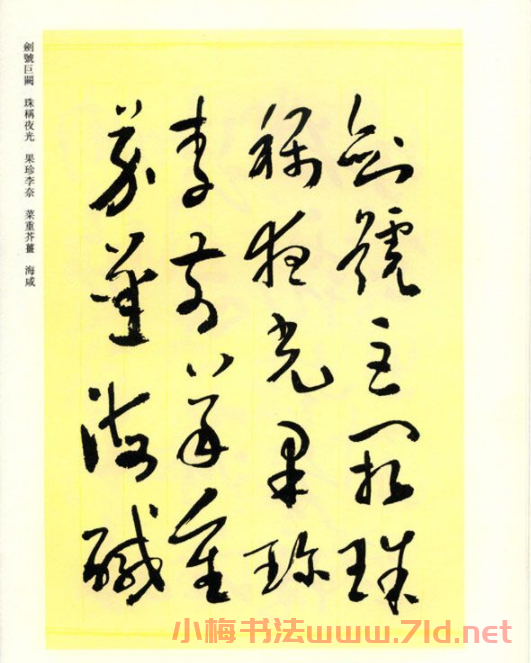 劍號巨闕珠
稱夜光果珍
李柰菜重
芥薑海鹹
劍號巨闕　珠稱夜光　果珍李奈　菜重芥薑　海咸
小梅书法www.7ld.net